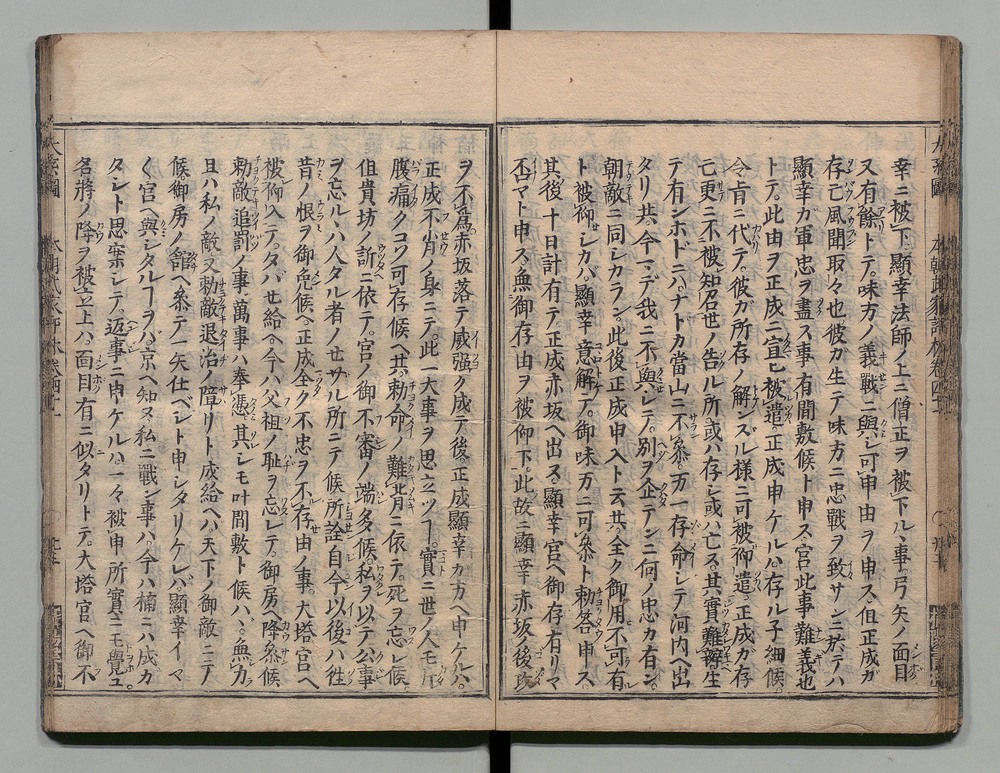 幸ニ被下、顯幸法師ノ上ニ僧正ヲ被下ル事、弓矢ノ面目
又有餘トテ。味方ノ義戰ニ與シ可申由ヲ申ス。但正成ガ
存亡風聞取々也。彼ガ生テ味方ニ忠戰ヲ致サンニ於テハ
顯幸ガ軍忠ヲ盡ス事、有間敷候ト申ス。宮此事難義也
トテ。此由ヲ正成ニ宣ヒ被遣。正成申ケルハ、存ル子細候。
令旨ニ代テ。彼カ所存ノ解ズル様ニ可被仰遣。正成ガ存
亡更ニ不被知召。世ノ告ル所或ハ存シ或ハ亡スル其實難辨。生
テ有ンホドニハ、ナドカ當山ニ不參。万一存命シテ河内ヘ出
タリ共、今マデ我ニ不與シテ。別ヲ企テンニ何ノ忠カ有ン。
朝敵ニ同シカラン。此後正成申入ト云共、全ク御用不可有
ト被仰シカバ、顯幸意解テ。御味方ニ可參ト勅答申ス。
其後十日計有テ、正成赤坂ヘ出ル。顯幸宮ヘ御存有リマ
不マト申ス。無御存由ヲ被仰下。此故ニ顯幸赤坂後攻
ヲ不爲。赤坂落テ威强ク成テ後、正成顯幸カ方ヘ申ケルハ。
正成不肖ノ身ニテ。此一大事ヲ思立ツ事。實ニ世ノ人モ
腹痛クコソ可存候ヘ共、勅命ノ難背ニ依テ。死ヲ忘レ候
但貴坊ノ訴ニ依テ。宮ノ御不審ノ端多候。私ヲ以テ公事
ヲ忘ルハ、人タル者ノ世ザル所ニテ候。所詮自今以後ハ往
昔ノ恨ヲ御免候ヘ。正成全ク不忠ヲ不存由ノ事。大塔宮ヘ
被仰入テ。タバセ給ヘ。今ハ父祖ノ耻ヲ忘レテ。御房ヘ降參候
勅敵追罰ノ事、萬事ハ奉憑。其レモ叶間敷ト候ハヾ。無力
且ハ私ノ敵、又勅敵退治ノ障リト成給ヘハ、天下ノ御敵ニテ
候。御房ノ舘ヘ參テ一矢仕ベシト申シタリケレバ。顯幸イマ
ダ宮ヘ與シタル事ヲバ、京ヘ知ヌ。私ニ戰ン事ハ、今ハ楠ニハ成カ
タシト思案シテ。返事ニ申ケルハ。一々被申所實ニモ覺ユ。
名將ノ降ヲ被立上ハ。面目有ニ似タリトテ。大塔宮ヘ御不